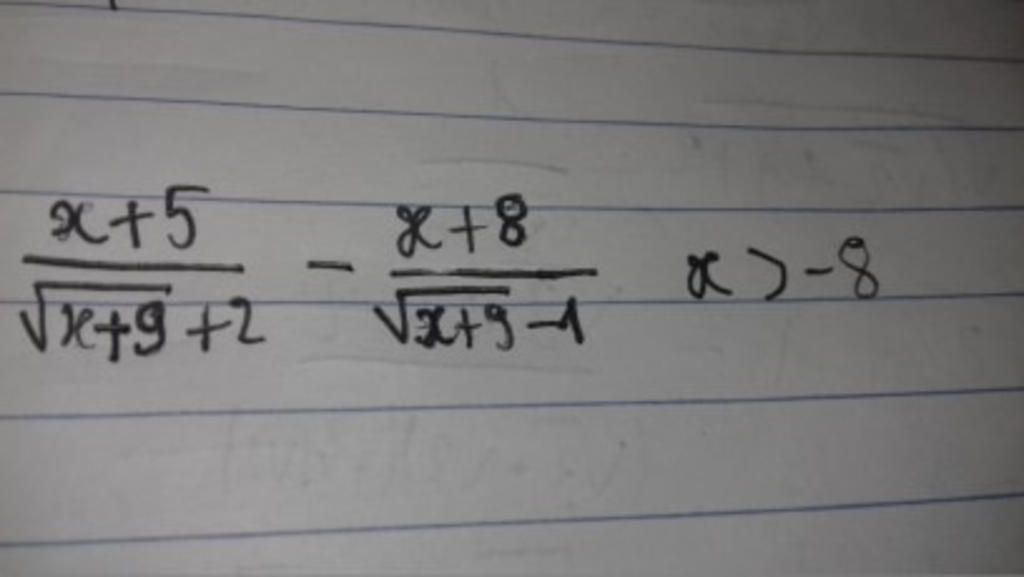 \frac{x+5}{\sqrt{x+9}+2} - \frac{x+8}{\sqrt{x+9}-1} x > -8